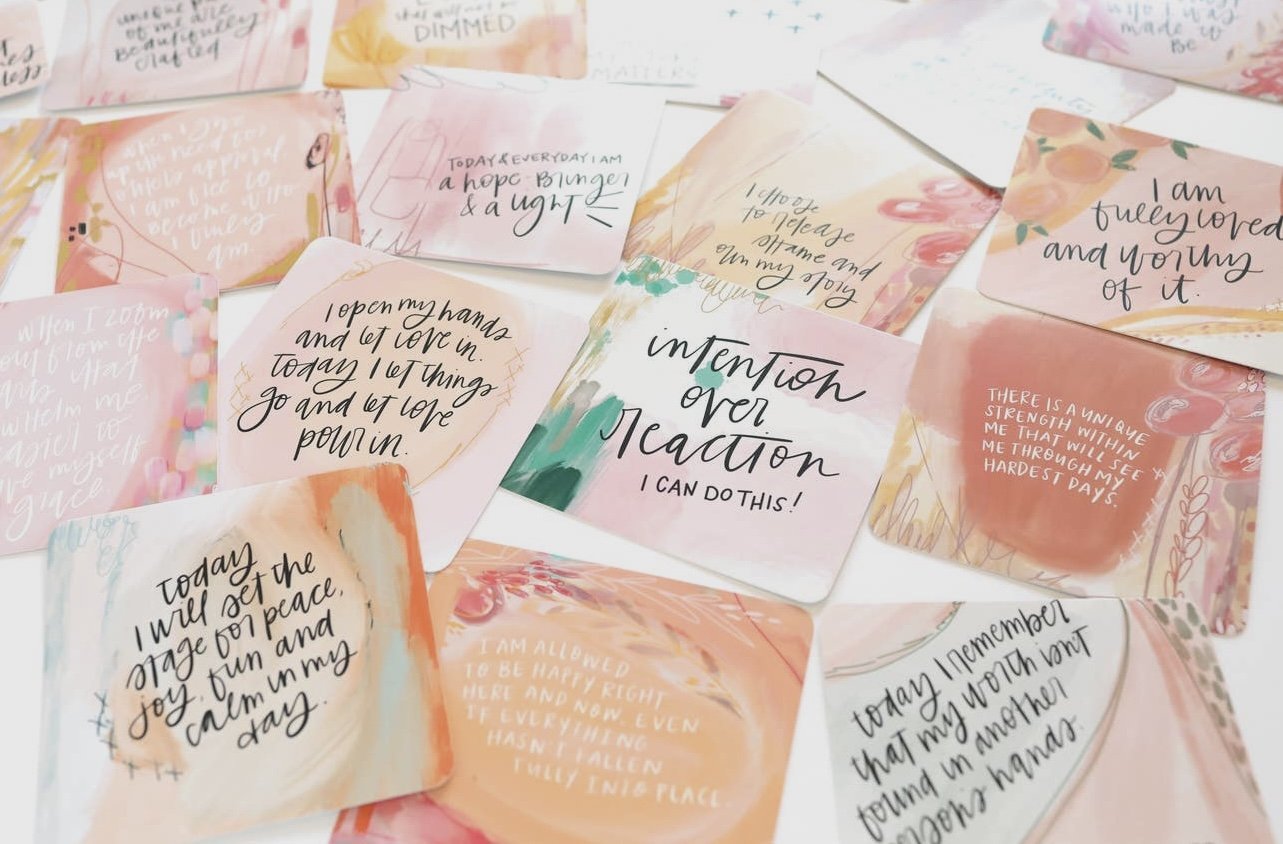 unique parts
of me are
beautifully
crafted
that will not be
DIMMED
MATTERS
who I was
made to
Be
when I give
up the need for
other's approval
I am free to
become who
I truly
am.
TODAY & EVERYDAY I AM
a hope-Bringer
& a light
I choose
to release
shame and
own my story
I am
fully loved
and worthy
of it.
when I zoom
out from the
that
me.
to
myself
grace.
I open my hands
and let love in.
today I let things
go and let love
pour in.
intention
over
reaction
I CAN DO THIS!
THERE IS A UNIQUE
STRENGTH WITHIN
ME THAT WILL SEE
ME THROUGH MY
HARDEST DAYS.
today
I will set the
stage for peace,
joy, fun and
calm in my
day.
I AM ALLOWED
TO BE HAPPY RIGHT
HERE AND NOW. EVEN
IF EVERYTHING
HASN'T FALLEN
FULLY INTO PLACE.
today I remember
that my worth isn't
found in another
person's hands.